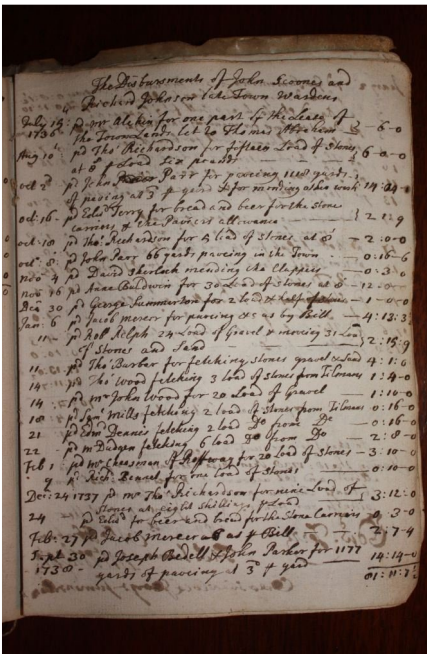 The Disbursments of John Scoones and
Richard Johnson late Town Wardens
July 15: 1736 pd mr for one part of the Lease of
the Town Lands let to Thomas - 6-0
Aug 10 pd Tho Richardson for fifteen Load of Stones
at 8s p Load Six pounds 6-0-0
oct 2d pd John Parr for paveing 1118 yards
of paveing at 3d p yard & for mending other work 14:04-0
oct: 16 - pd Eliz Terry for bread and beer for the stone
carriers & the Paviers allowance 2 1:9
oct: 18 pd Tho: Richardson for 5 load of stones at 8s - 2:0-0
octr 8: pd John Parr 66 yards paveing in the Town - 0:16-6
Nov 4 pd David Sherlock mending the Clappers - 0:3-0
Nov 16 pd Anne Baldwin for 30 Load of Stones at 8 - 12:0-
Dec 30 pd George Summerton for 2 load & half of - 1-0-0
Jan 6 pd Jacob mercer for paveing &c as by Bill - 4:13:3
11 pd Rob Relph 24 Load of Gravel & moveing 31 Load
of Stones and Sand 2:15:9
11 pd Tho: Barbar for fetching stones gravel & Sand 4:1:6
14 pd Tho Wood fetching 3 load of stones from Tilmans 1:4-0
14: pd mr John Wood for 20 Load of Gravel - 1:10-0
18 pd Mills fetching 2 load of stones from Tilmans 0:16-0
21 pd Edw Dennis fetching 2 load Do from Do - 0:16-0
22 pd mr Budgen fetching 6 load Do from Do - 2:8-0
Feb 1: pd mr Cheesman of for 20 Load of Stones - 3:10-0
9 pd Rich Bennet for one Load of Stones - 0:10-0
Dec: 24 1737 pd mr Tho Richardson for nine Load of
Stones at eight shillings p Load 3:12:0
24 pd for beer and bread for the Stone Carriers 0 3-0
Feb: 27 pd Jacob mercer as p Bill 2:7-4
Sept 30 1738 - pd Joseph Bedell & John Parker for 1177
yards of paveing at 3d p yard 14:14-0
81:11:7½